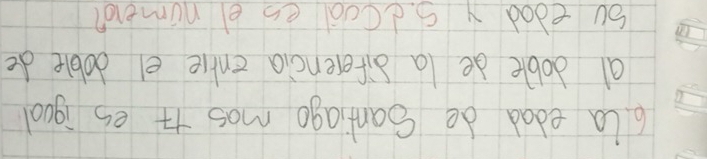 6. La edad de Santiago mas 17 es igual
al doble de la diferencia entre el doble de
su edad y 5. ¿Cúal es el número?